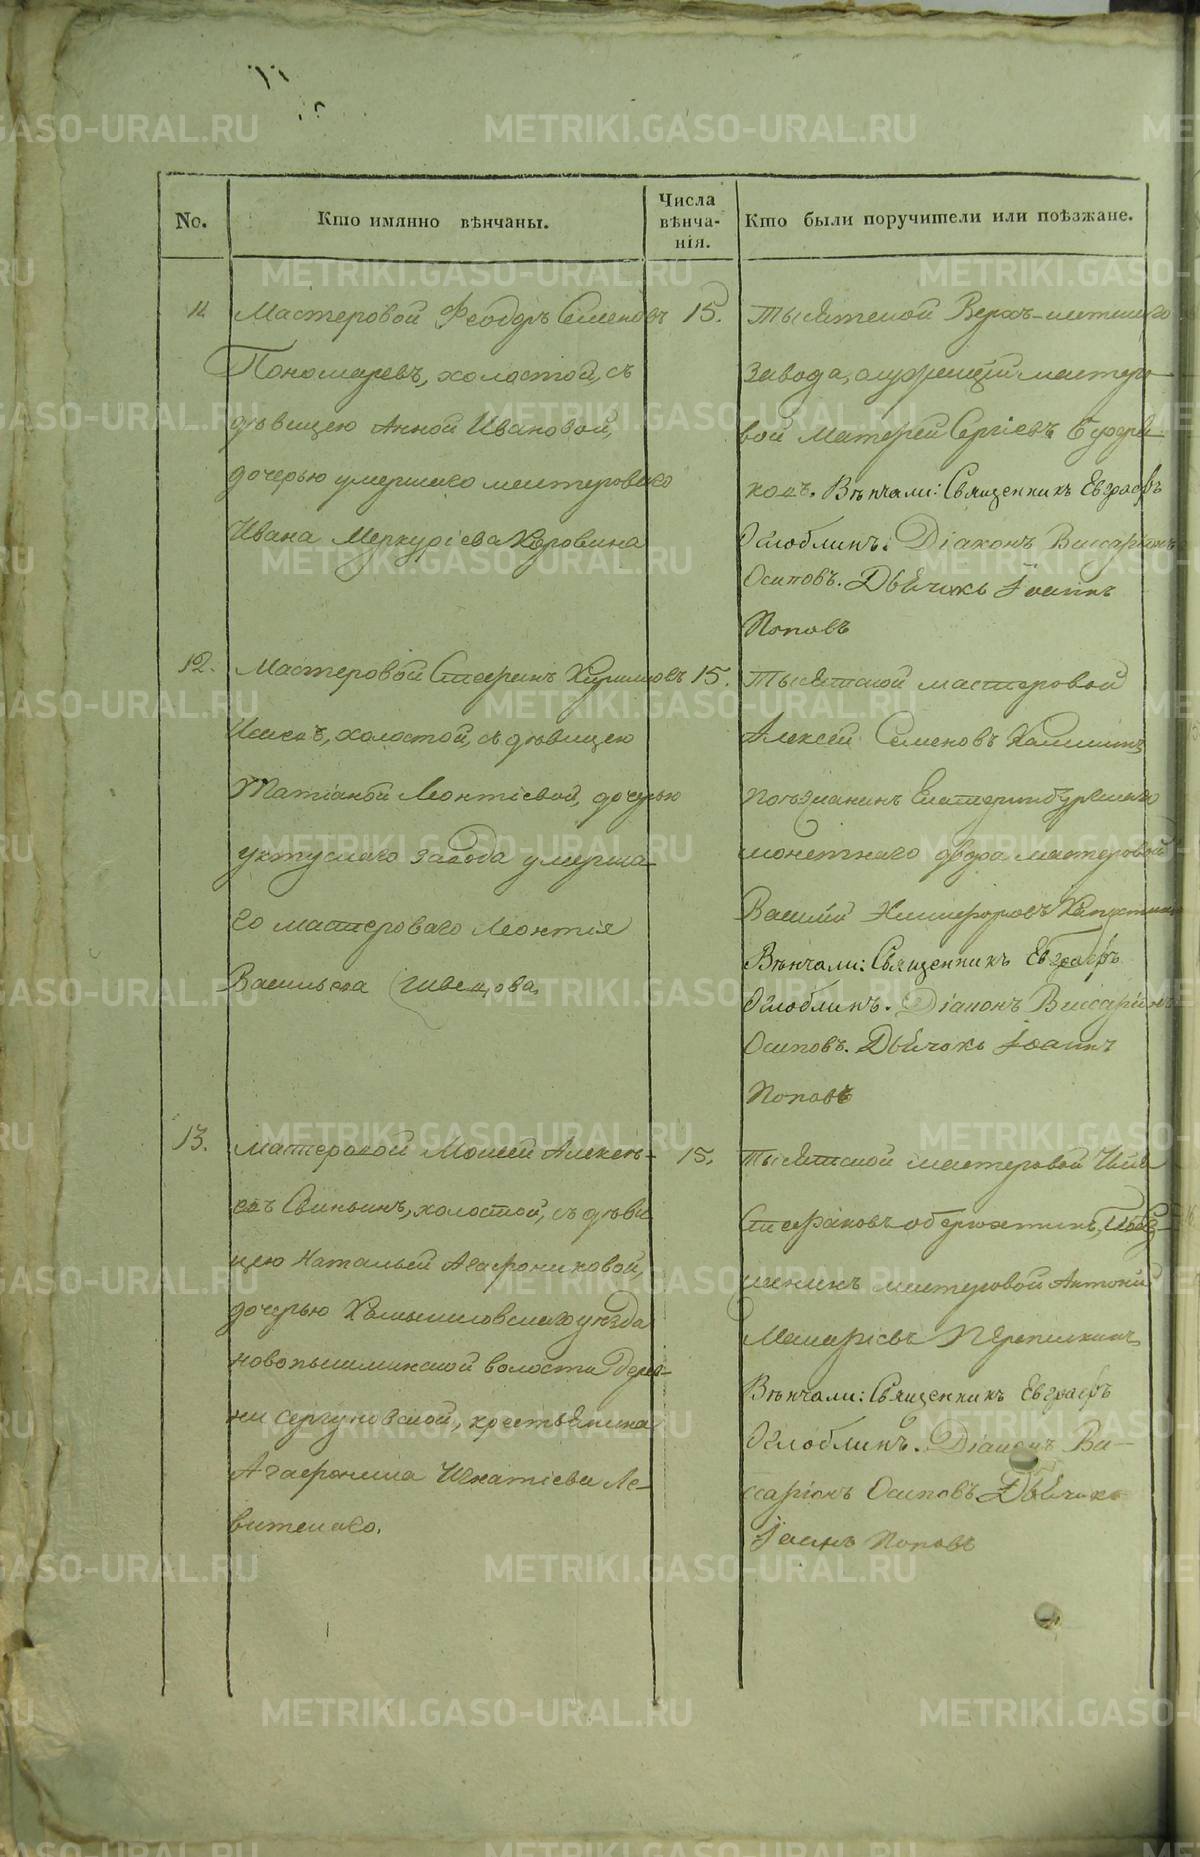 No.
Кто имянно вѣнчаны.
Числа
вѣнча-
нія.
Кто были поручители или поѣзжане.
11.
Мастеровой Феодоръ Семеновъ
Пономаревъ, холостой, съ
дѣвицею Анной Ивановой,
дочерью умершаго мастероваго
Ивана Меркуріева Коровина
15.
Тысятской Верхъ-исетскаго
завода, мастеро-
вой Сергіевъ
Вѣнчали: Священникъ Евграфъ
Оглоблинъ. Діаконъ Виссаріонъ
Осиповъ. Дьячокъ Іоаннъ
Поповъ
12.
Мастеровой Стефанъ
холостой, съ дѣвицею
Татіаной Леонтіевой, дочерью
уктускаго завода умерша-
го мастероваго Леонтія
Васильева Швецова.
15.
Тысятской мастеровой
Алексей Семеновъ
Поѣзжанинъ Екатеринбургскаго
монетнаго двора мастеровой
Василій Никифоровъ
Вѣнчали: Священникъ Евграфъ
Оглоблинъ. Діаконъ Виссаріонъ
Осиповъ. Дьячокъ Іоаннъ
Поповъ
13.
Мастеровой Моисей Алексѣ-
евъ Свиньинъ, холостой, съ дѣви-
цею Натальей Агафониковой,
дочерью Камышловскаго уѣзда
новопышминской волости дерев-
ни Сергуновской, крестьянина
Агафоника Игнатіева Ле-
витскаго.
15.
Тысятской мастеровой
Стефановъ
мастеровой Антоній
Макаріевъ
Вѣнчали: Священникъ Евграфъ
Оглоблинъ. Діаконъ Ви-
ссаріонъ Осиповъ Дьячокъ
Іоаннъ Поповъ
METRIKI.GASO-URAL.RU